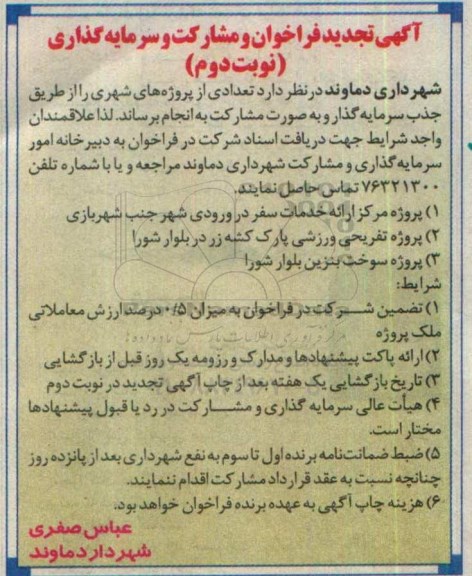 آگهی تجدید فراخوان و مشارکت و سرمایه گذاری
(نوبت دوم)
شهرداری دماوند در نظر دارد تعدادی از پروژه های شهری را از طریق
جذب سرمایه گذار و به صورت مشارکت به انجام برساند. لذا علاقمندان
واجد شرایط جهت دریافت اسناد شرکت در فراخوان به دبیرخانه امور
سرمایه گذاری و مشارکت شهرداری دماوند مراجعه و یا با شماره تلفن
۷۶۳۲۱۳۰۰ تماس حاصل نمایند.
۱) پروژه مرکز ارائه خدمات سفر در ورودی شهر جنب شهربازی
۲) پروژه تفریحی ورزشی پارک کشه زر در بلوار شورا
۳) پروژه سوخت بنزین بلوار شورا
شرایط:
۱) تضمین شرکت در فراخوان به میزان ۰/۵ درصد ارزش معاملاتی
ملک پروژه
۲) ارائه پاکت پیشنهادها و مدارک و رزومه یک روز قبل از بازگشایی
۳) تاریخ بازگشایی یک هفته بعد از چاپ آگهی تجدید در نوبت دوم
۴) هیأت عالی سرمایه گذاری و مشارکت در رد یا قبول پیشنهادها
مختار است.
۵) ضبط ضمانت‌نامه برنده اول تا سوم به نفع شهرداری بعد از پانزده روز
چنانچه نسبت به عقد قرارداد مشارکت اقدام ننمایند.
۶) هزینه چاپ آگهی به عهده برنده فراخوان خواهد بود.
عباس صفری
شهردار دماوند